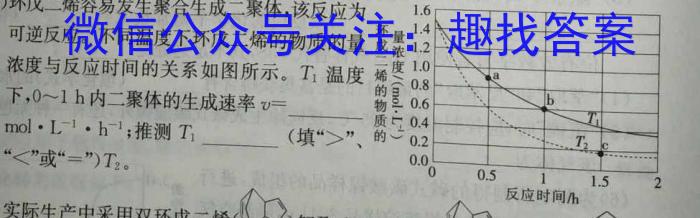 环戊二烯容易发生聚合生成二聚体,该反应为
可逆反应
微信公众号关注:趣找答案
浓度与反应时间的关系如图所示。T₁ 温度
下,0~1 h 内二聚体的生成速率 v=
mol·L⁻¹·h⁻¹;推测 T₁ ______ (填“>”、
“<”或“=”)T₂。
实际生产中采用双环戊二烯
烯的物质的量浓度/(mol·L⁻¹)
1.6
1.4
1.2
1.0
0.8
0.6
0.4
0.2
0.0
a
b
T₁
T₂
c
0 0.5 1 1.5 2
反应时间/h